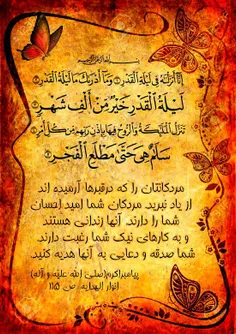 بسم الله الرحمن الرحیم
إِنَّا أَنْزَلْنَاهُ فِي لَيْلَةِ الْقَدْرِ وَمَا أَدْرَاكَ مَا لَيْلَةُ الْقَدْرِ
لَيْلَةُ الْقَدْرِ خَيْرٌ مِنْ أَلْفِ شَهْرٍ
تَنَزَّلُ الْمَلَائِكَةُ وَالرُّوحُ فِيهَا بِإِذْنِ رَبِّهِمْ مِنْ كُلِّ أَمْرٍ
سَلَامٌ هِيَ حَتَّى مَطْلَعِ الْفَجْرِ
مردگانتان را که درقبرها آرمیده اند
از یاد نبرید. مردگان شما امید احسان
شما را دارند. آنها زندانی هستند
و به کارهای نیک شما رغبت دارند
شما صدقه و دعایی به آنها هدیه کنید
پیامبراکرم(صلی الله علیه و آله)
انوار الهدایه، ص ۱۱۵